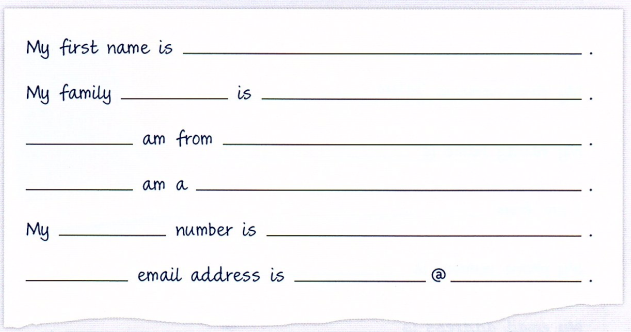 My first name is ____________________ .
My family __________ is ____________________ .
__________ am from ____________________ .
__________ am a ____________________ .
My __________ number is ____________________ .
__________ email address is __________ @ __________ .